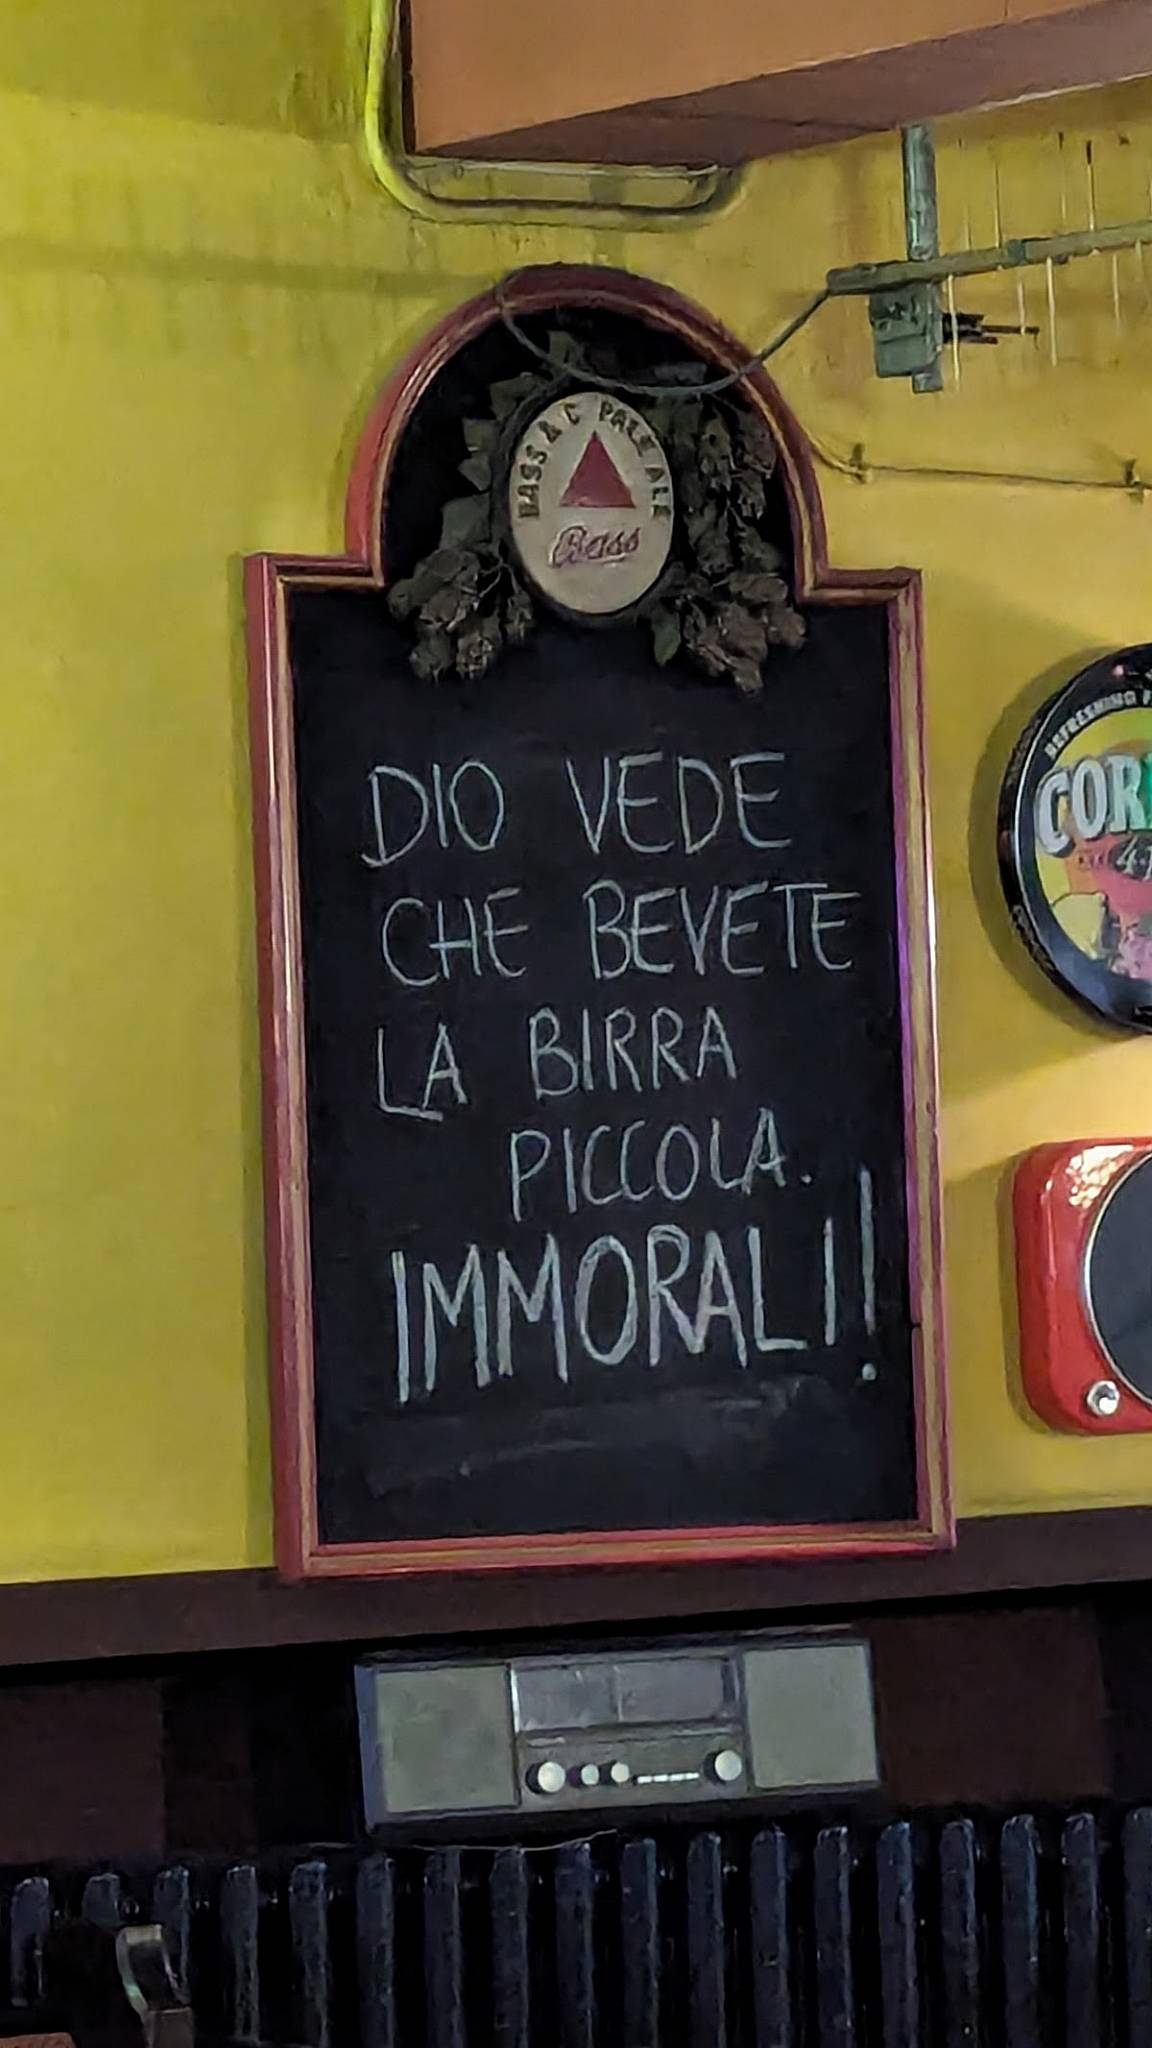 BASS & C PALE ALE
Bass
DIO VEDE
CHE BEVETE
LA BIRRA
PICCOLA.
IMMORALI!
REFRESHING
COR